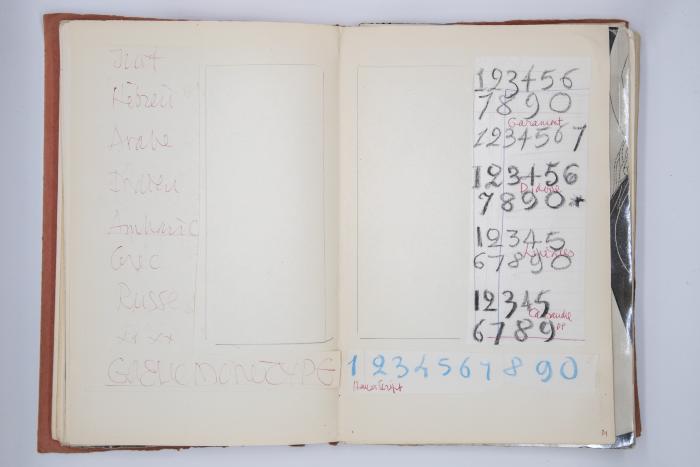 Hébreu
Arabe
Amharic
Grec
Russe
xx xx
GAELIC MONOTYPE
123456
7890
Garamont
1234567
123456
Didone
7890
12345
Linéales
67890
12345
Cassandre
6789
PP
1234567890
Manuscript